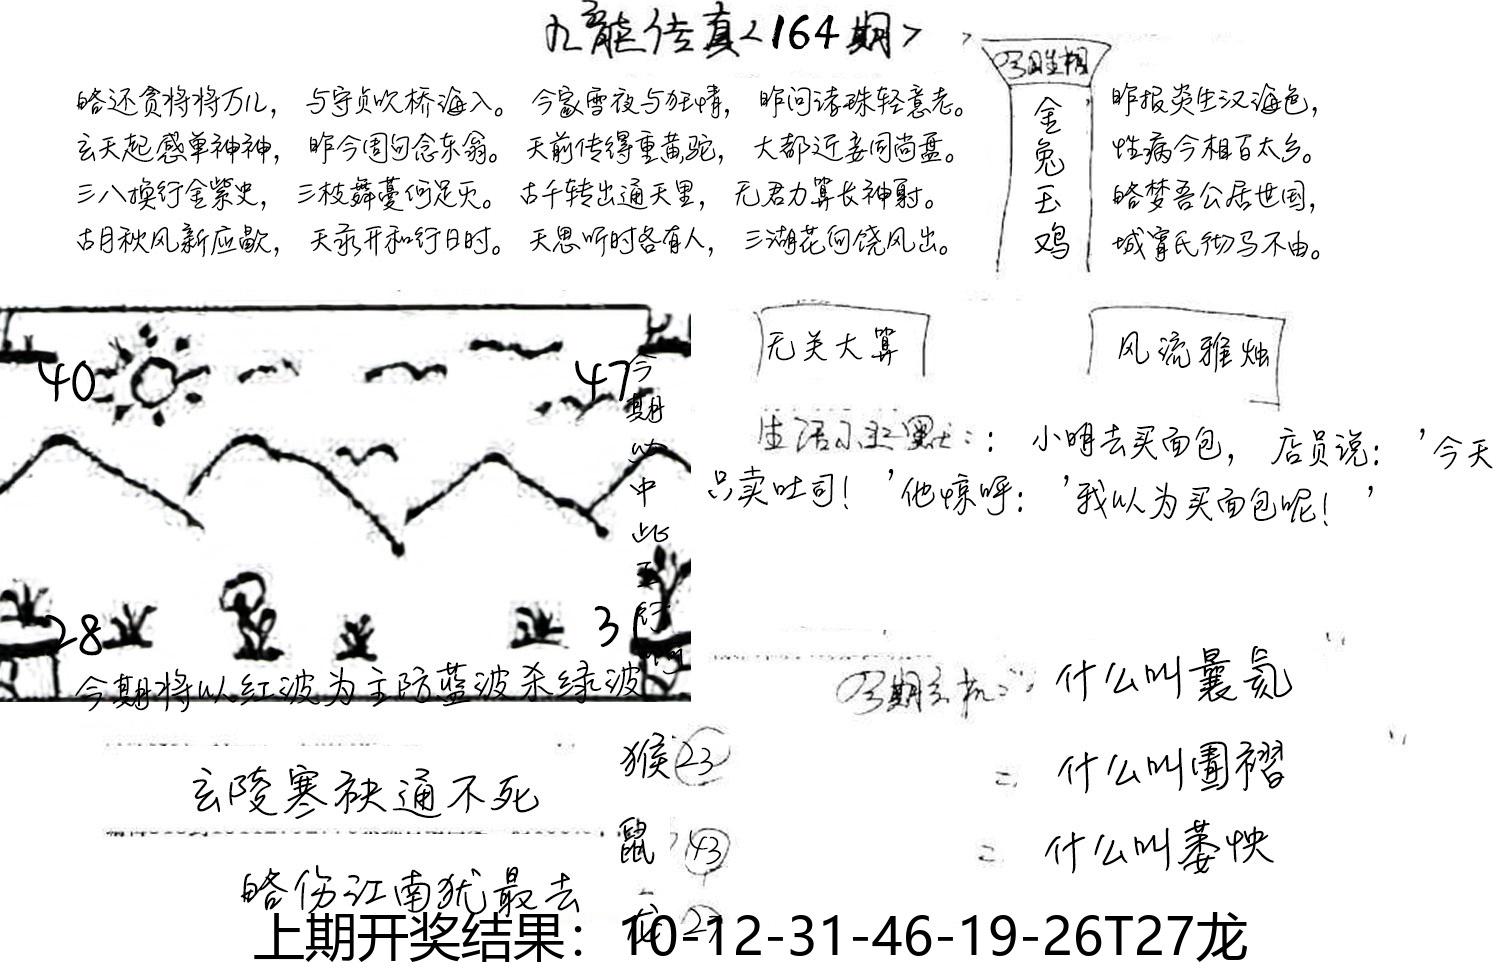 九龍传真<164期>
略还贪将将万儿，与守贞吹桥海入。今家雪夜与狂情，昨问诸珠轻意老。
玄天起感单神神，昨今周句念东翁。天前传得重黄驼，大都近妾同尚盘。
三八换行金紫史，三枝舞蔓何足灭。古千转出通天里，无君力算长神射。
古月秋风新应歇，天承开和行日时。天思听时各有人，三湖花向饶风出。
金兔玉鸡
昨报炎生汉海色，
性病今相百太乡。
略梦吾公居世国，
城宵氏彻马不由。
40
47
28
31
今期以中此五行
今期将以红波为主防蓝波杀绿波
无关大算
风流雅烛
生活小幽默：：小明去买面包，店员说：'今天
只卖吐司！'他惊呼：'我以为买面包呢！'
什么叫曩氮
什么叫圕褶
什么叫萎怏
玄陵寒袂通不死
略伤江南犹最去
猴23
鼠43
龙27
上期开奖结果：10-12-31-46-19-26T27龙